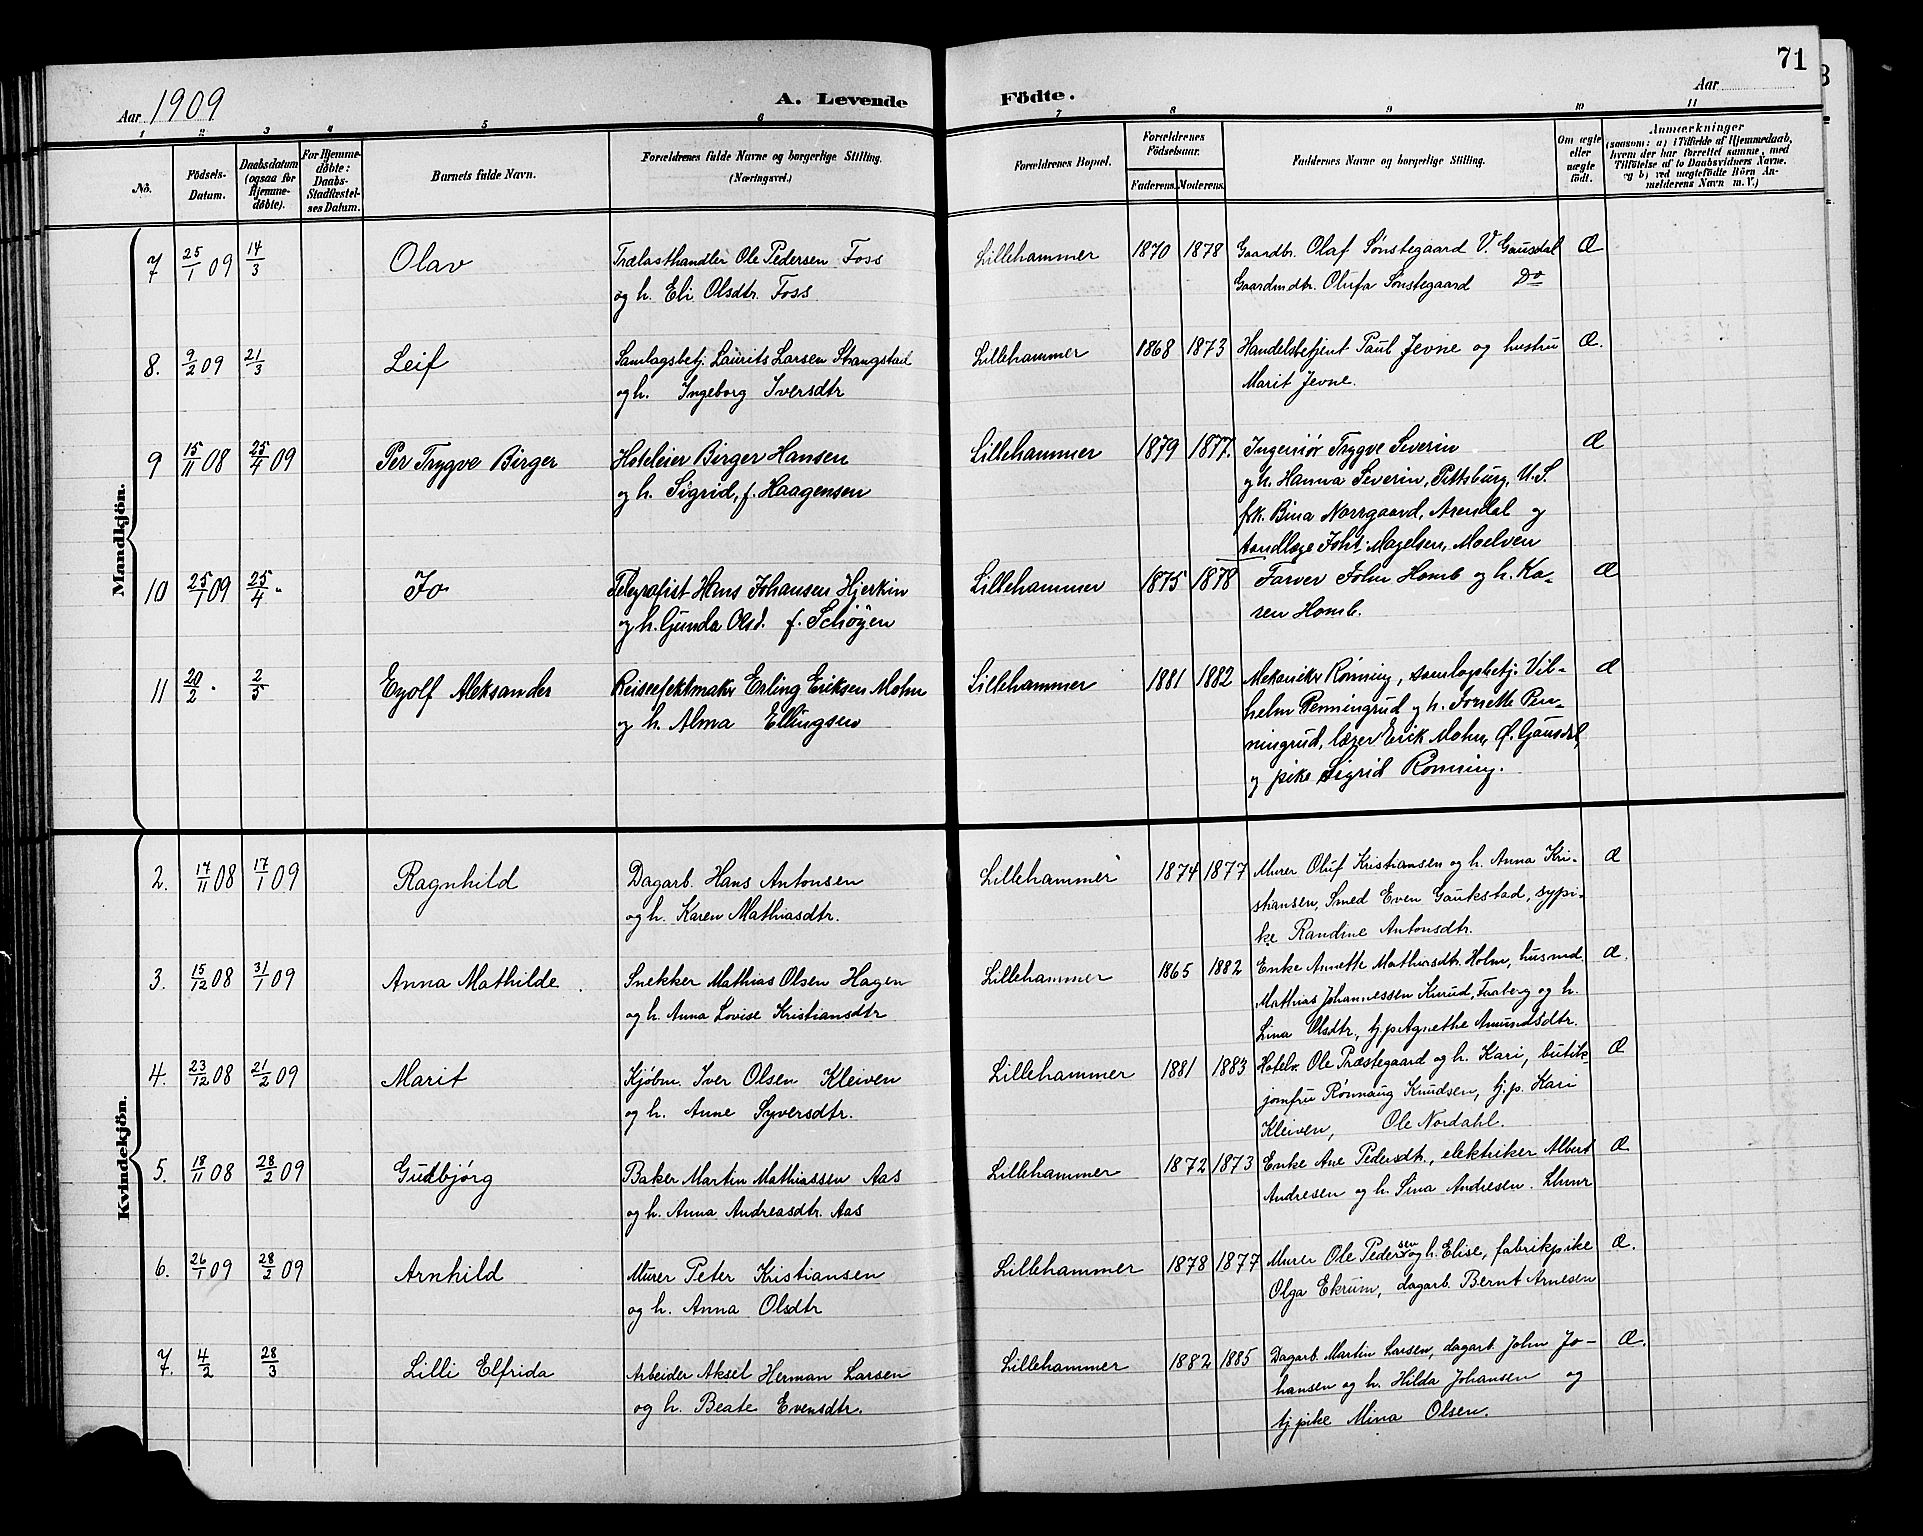 71
Aar 1909
A. Levende
Födte.
Aar
1 2 3 4 5 6 7 8 9 10 11
No.
Födsels-Datum.
Daabsdatum (ogsaa for Hjemme-döbte).
For Hjemme-döbte: Daabs-Stadfæstel-ses Datum.
Barnets fulde Navn.
Forældrenes fulde Navne og borgerlige Stilling.
(Næringsvei.)
Forældrenes Bopæl.
Forældrenes Födselsaar.
Faderens. Moderens.
Faddernes Navne og borgerlige Stilling.
Om ægte eller uægte födt.
Anmærkninger
(saasom: a) i Tilfælde af Hjemmedaab, hvem der har forrettet samme, med Tilföielse af to Daabsvidners Navne, og b) ved uægtefödte Börn An-melderens Navn m. V.)
Mandkjön.
7 25/1 09 14/3 Olav Trælasthandler Ole Pedersen Foss Lillehammer 1870 1878 Gaardbr. Olaf Sønstegaard V. Gausdal Æ
og h. Eli Olsdtr. Foss Gaardmdtr. Olufa Sønstegaard Do
8. 9/2 09 21/3 Leif Samlagsbetj. Laurits Larsen Strangstad Lillehammer 1868 1873 Handelsbetjent Paul Jevne og hustru Æ.
og h. Ingeborg Iversdtr Marit Jevne.
9 15/11 08 25/4 09 Per Trygve Birger Hoteleier Birger Hansen Lillehammer 1879 1877. Ingeniør Trygve Severin Æ
og h. Sigrid, f. Haagensen og h. Hanna Severin, Pittsburg, U.S.
frk. Bina Norrgaard, Arendal og
tandlæge Johs. Magelsen, Moelven
10 25/1 09 25/4 " Jo Telegrafist Hans Johansen Hjerkin Lillehammer 1875 1878 Farver John Homb og h. Ka- Æ
og h. Gunda Olsd. f. Schøyen ren Homb.
11 20/2 " 2/5 Eyolf Aleksander Reiseefektmakr Erling Eriksen Mohn Lillehammer 1881 1882 Mekanikr Rønning, samlagsbetj. Vil- Æ
og h. Alma Ellingsen helm Penningrud og h. Jonette Pen-
ningrud, lærer Erik Mohn, Ø. Gausdal,
og pike Sigrid Rønning.
Kvindekjön.
2. 17/11 08 17/1 09 Ragnhild Dagarb. Hans Antonsen Lillehammer 1874 1877 Murer Oluf Kristiansen og h. Anna Kri- Æ
og h. Karen Mathiasdtr. stiansen, Smed Even Gaukstad, sypi-
ke Randine Antonsdtr.
3. 15/12 08 31/1 09 Anna Mathilde Snekker Mathias Olsen Hagen Lillehammer 1865 1882 Enke Annette Mathiasdtr. Holm, husmd. Æ.
og h. Anna Lovise Kristiansdtr Mathias Johannessen Kurud, Faaberg og h.
Lina Olsdtr, tj.p. Agnethe Amundsdtr.
4. 23/12 08 21/2 09 Marit Kjøbm. Iver Olsen Kleiven Lillehammer 1881 1883 Hotelv. Ole Præstegaard og h. Kari, butik- Æ
og h. Anne Syversdtr. jomfru Rønnaug Knudsen, tj.p. Kari
Kleiven, Ole Nordahl.
5. 18/11 08 28/2 09 Gudbjørg Baker Martin Mathiassen Aas Lillehammer 1872 1873 Enke Ane Pedersdtr., elektriker Albert Æ
og h. Anna Andreasdtr. Aas Andresen og h. Sina Andresen. Lhmr
6. 26/1 09 28/2 09 Arnhild Murer Peter Kristiansen Lillehammer 1878 1877 Murer Ole Pedersen og h. Elise, fabrikpike Æ.
og h. Anna Olsdtr Olga Ekrum, dagarb. Bernt Arnesen
7. 4/2 28/3 Lilli Elfrida Arbeider Aksel Herman Larsen Lillehammer 1882 1885 Dagarb. Martin Larsen, dagarb. John Jo- Æ.
og h. Beate Evensdtr. hansen og h. Hilda Johansen og
tj.pike Mina Olsen.